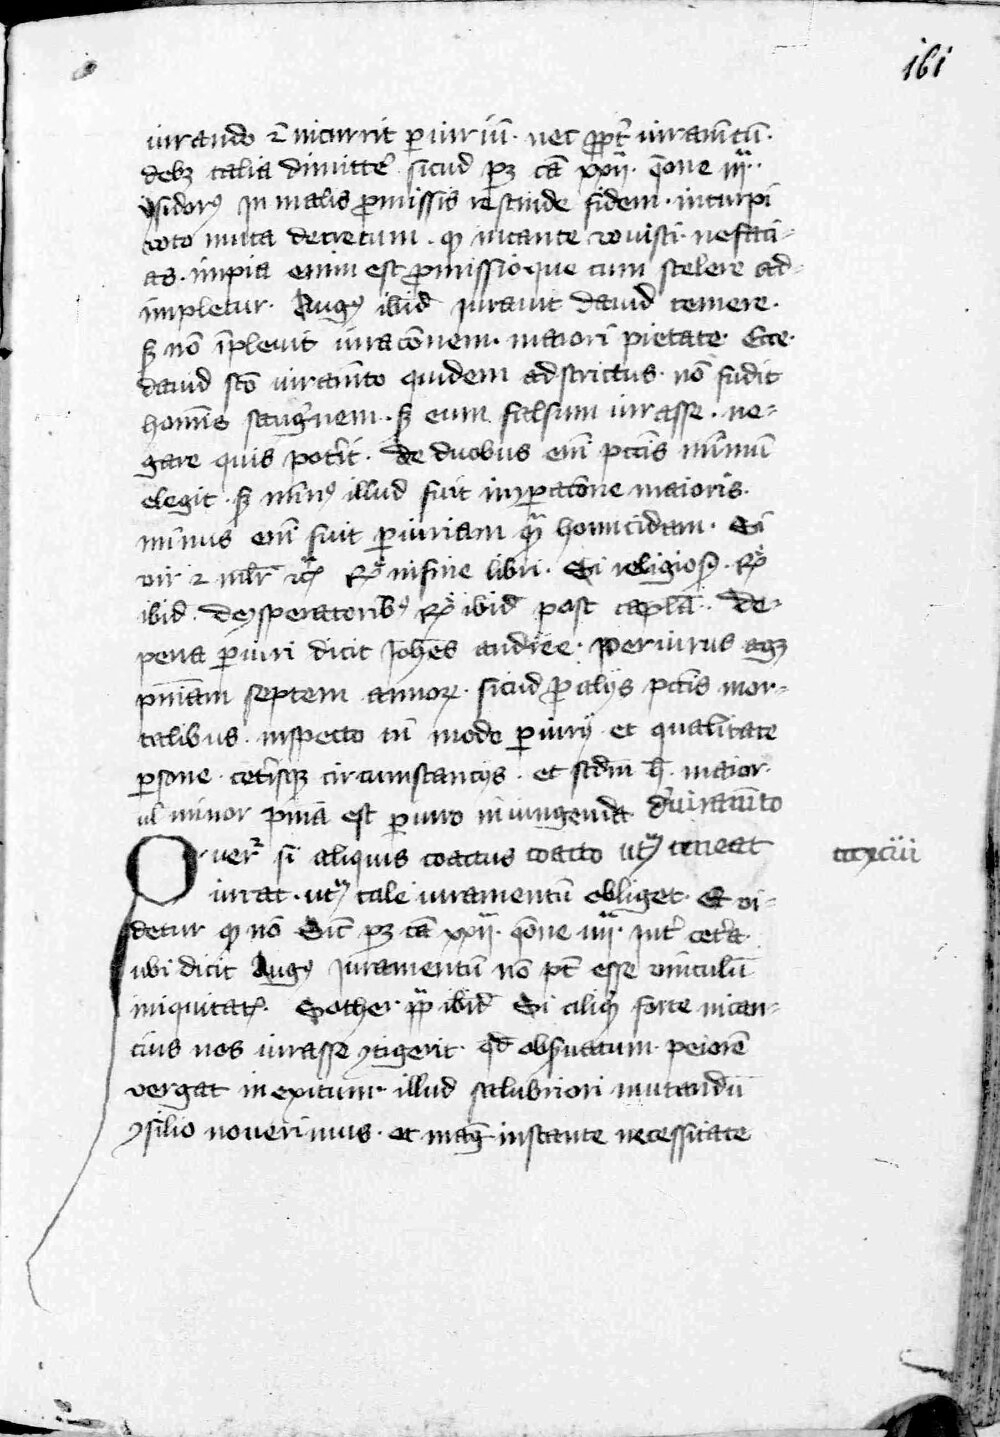 161
iurando ⁊ incurrit ꝑiuriū. nec ꝓpt̕ iuramtū.
debꝫ talia dimitte̕ sicud pꝫ cā xxii. q̄one iiii.
ysidorꝰ In malis ꝓmissis rescinde fidem. inturpi
voto muta decretum. qđ incaute vouisti. nefaci-
as. impia enim est ꝓmissio. que cum scelere ad-
impletur. Augꝰ ibid̄ Iurauit dauid temere.
sꝫ nō īpleuit iuracōnem. maiori pietate. Ecce.
dauid sc̄o iuramto quidem adstrictus. nō fudit
homīs sangwinem. sꝫ eum falsum iurasse. ne-
gare quis potit. de duobus em̄ pctīs minimū
elegit. sꝫ minꝰ illud fuit in ꝯparacōne maioris.
minus em̄ fuit ꝑiuriam qm̄ homicidam. Si
vir ⁊ mlr̄ ꝛcꝭ infine libri. Si religiosꝰ.
ibid. dyspensatoribꝰ ibid post capl̄m. de
pena ꝑiuri dicit Ioh̄es andree. periurus agꝫ
pn̄iam septem annoꝝ. sicud ꝓ alijs pctīs mor-
talibus. inspecto tn̄ modo ꝑiurij. et qualitate
ꝑsone. cet̕isqꝫ circumstancijs. et scdm̄ h̄. maior.
ul̕ minor pn̄ia est ꝑiuro iniungenda de iuramto
Querit̕ si aliquis coactus coacto utꝝ teneat ccxciii
iurat. utꝝ tale iuramentū obliget. Et vi-
detur qđ nō Sic̄ pꝫ cā xxii. q̄one iiii. Int̕ cet̕a.
ubi dicit Augꝰ Iuramentū nō pt̄ esse vinculū
iniquitatꝭ. Sother pp̄ ibid̄ Si aliqͥd forte incau-
cius nos iurasse ꝯtigerit. qđ obs̕uatum. peiorē
vergat in exitum. illud salubriori mutandū
ꝯsilio nouerimus. et mag̕ instante necessitate